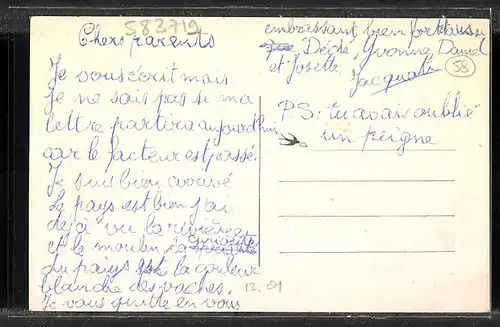 583719
Chers parents
Je vous écrit mais
Je ne sais pas si ma
lettre partira aujourd'hui
car le facteur est passé.
Je suis bien arrivé
Le pays est bien j'ai
déjà vu la rivière
et le moulin la curiosité
du pays est la couleur
blanche des vaches.
Je vous quitte en vous
embrassant bien fort
Dédé, Yvonne, Daniel
et Josette.
58
P.S: tu avais oublié
un peigne
12.01